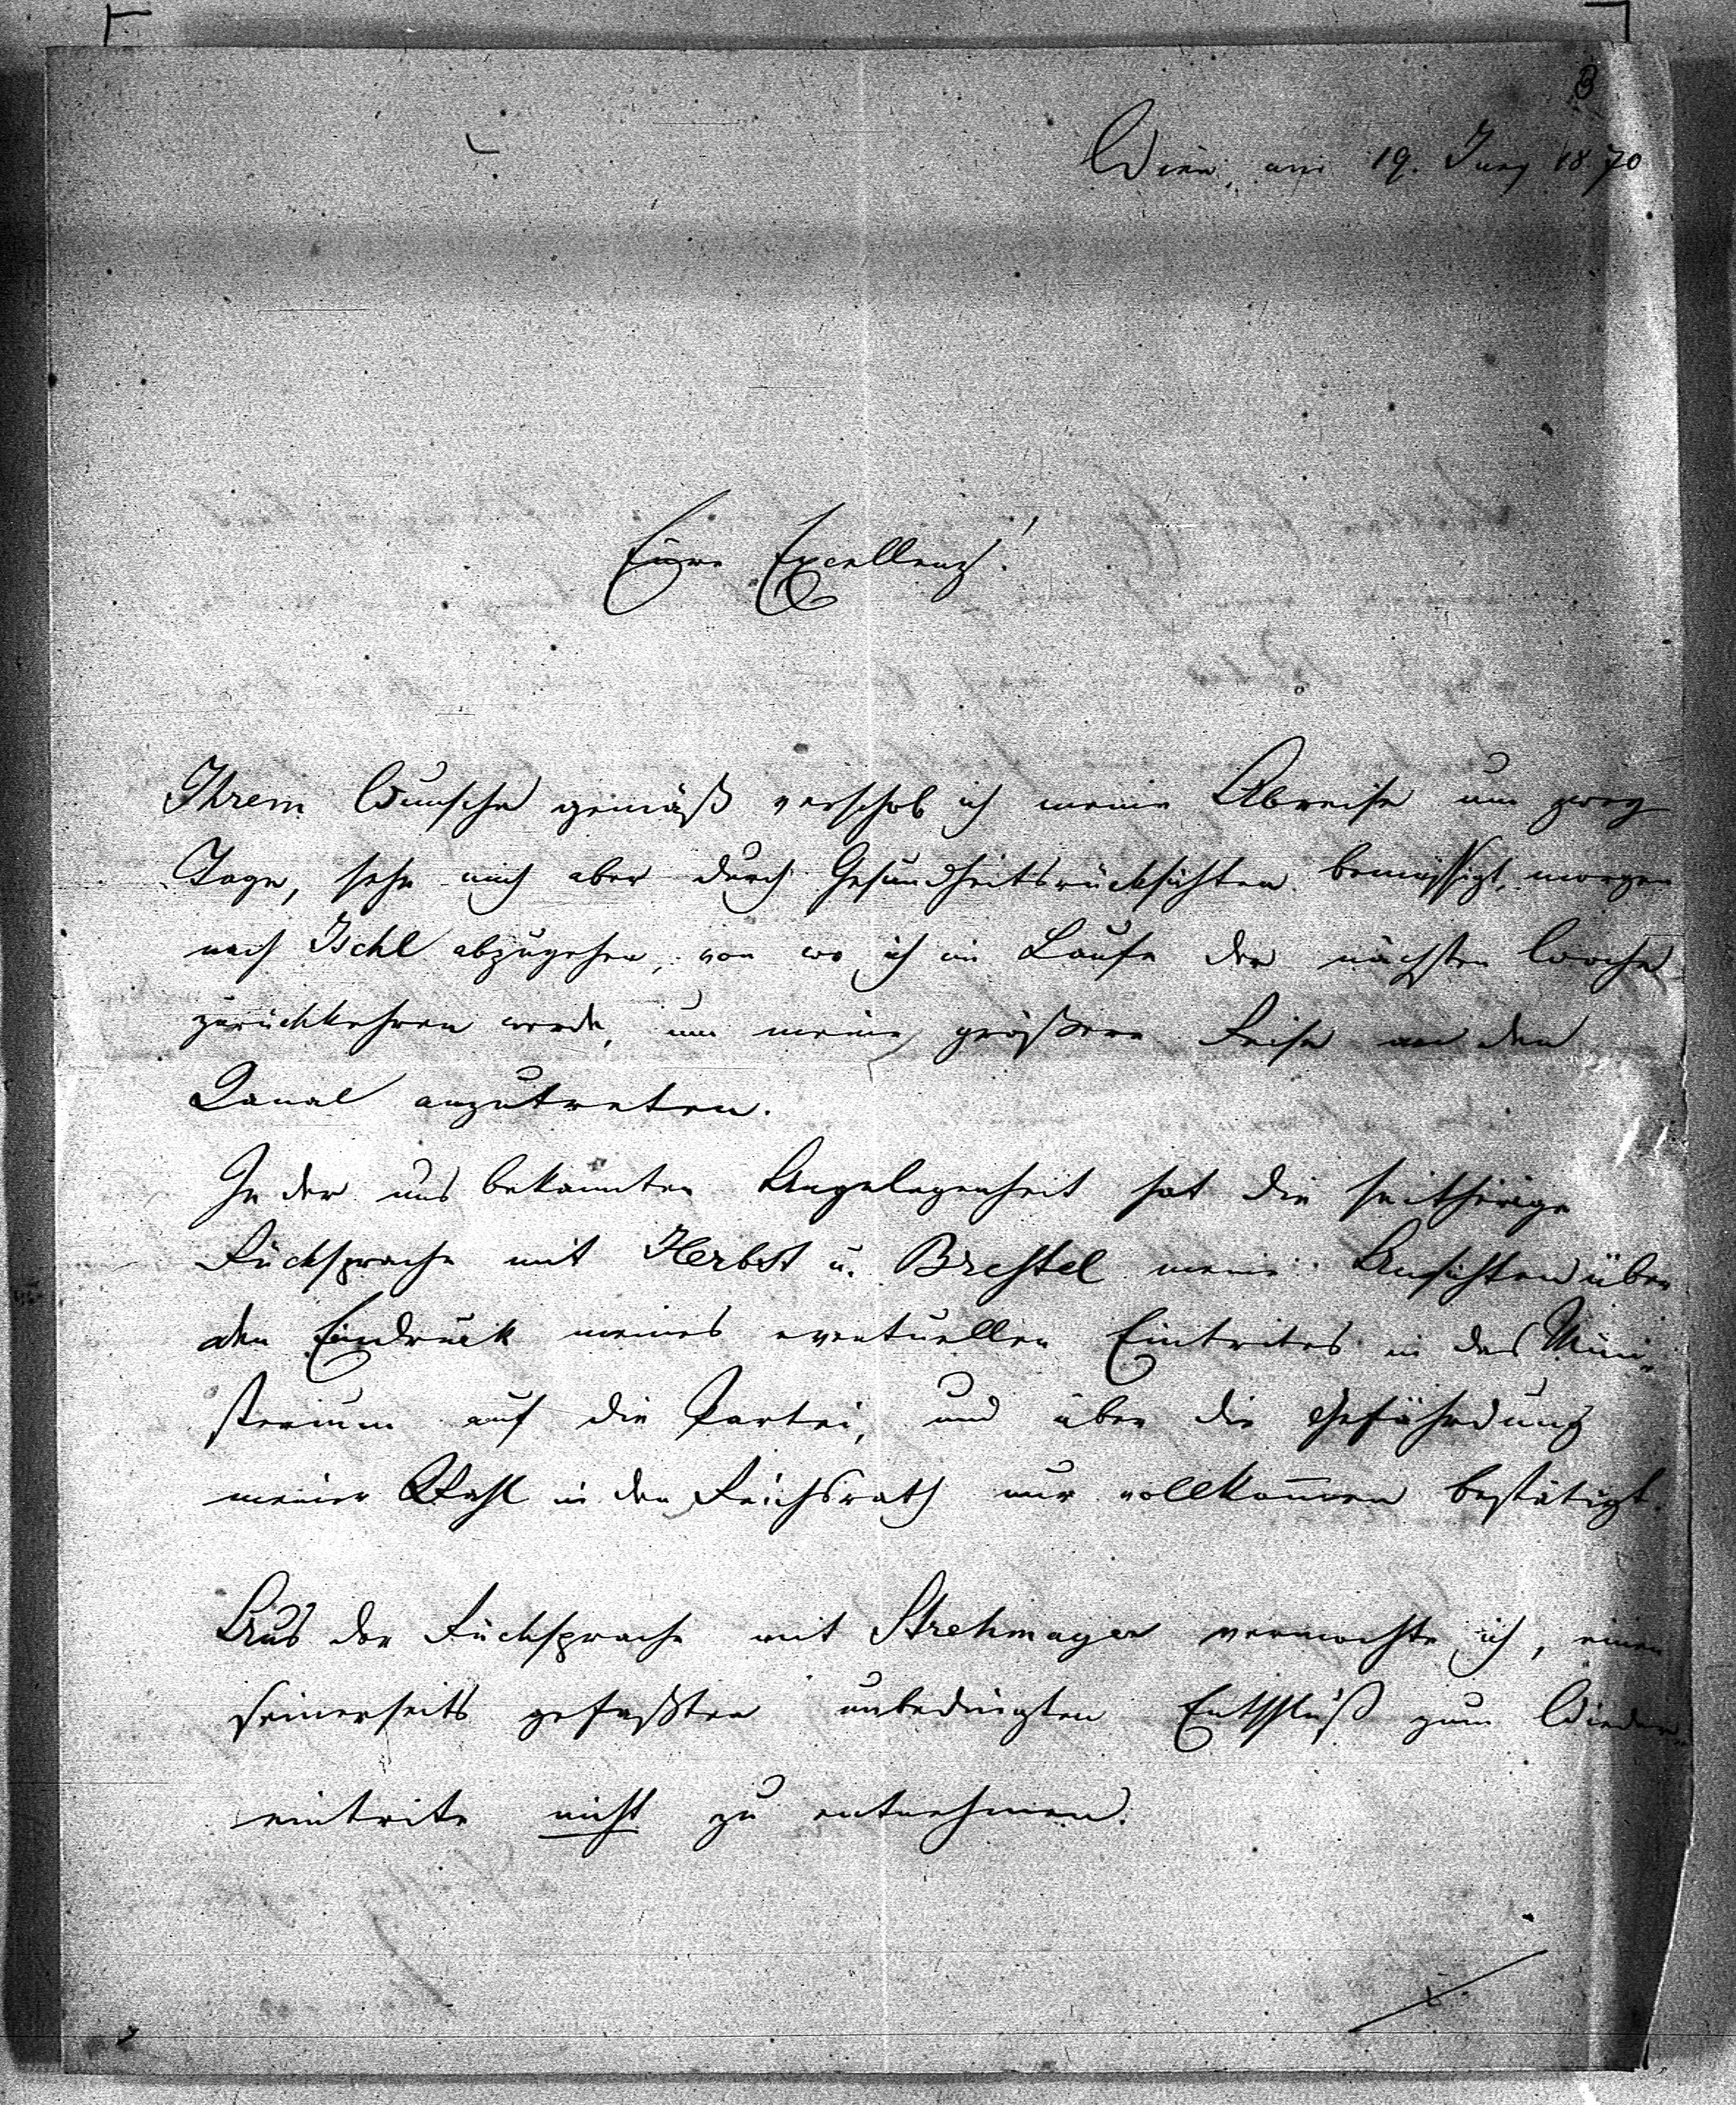 8
Wien, am 19. Juny 1870
Eure Excellenz!
Ihrem Wunsche gemäß verschob ich meine Abreise um zwey
Tage, sehe mich aber durch Gesundheitsrücksichten bemüssigt, morgen
nach Ischl abzugehen, von wo ich im Laufe der nächsten Woche
zurückkehren werde, um meine größere Reise an den
Kanal anzutreten.
In der uns bekannten Angelegenheit hat die seitherige
Rücksprache mit Herbst u. Brestel meine Ansichten über
den Eindruck meines eventuellen Eintrites in das Mini-
sterium auf die Partei, und über die Gefährdung
meiner Wahl in den Reichsrath nur vollkommen bestätigt.
Aus der Rücksprache mit Stremayer vermochte ich, einen
seinerseits gefaßten unbedingten Entschluß zum Wieder-
eintrite nicht zu entnehmen.